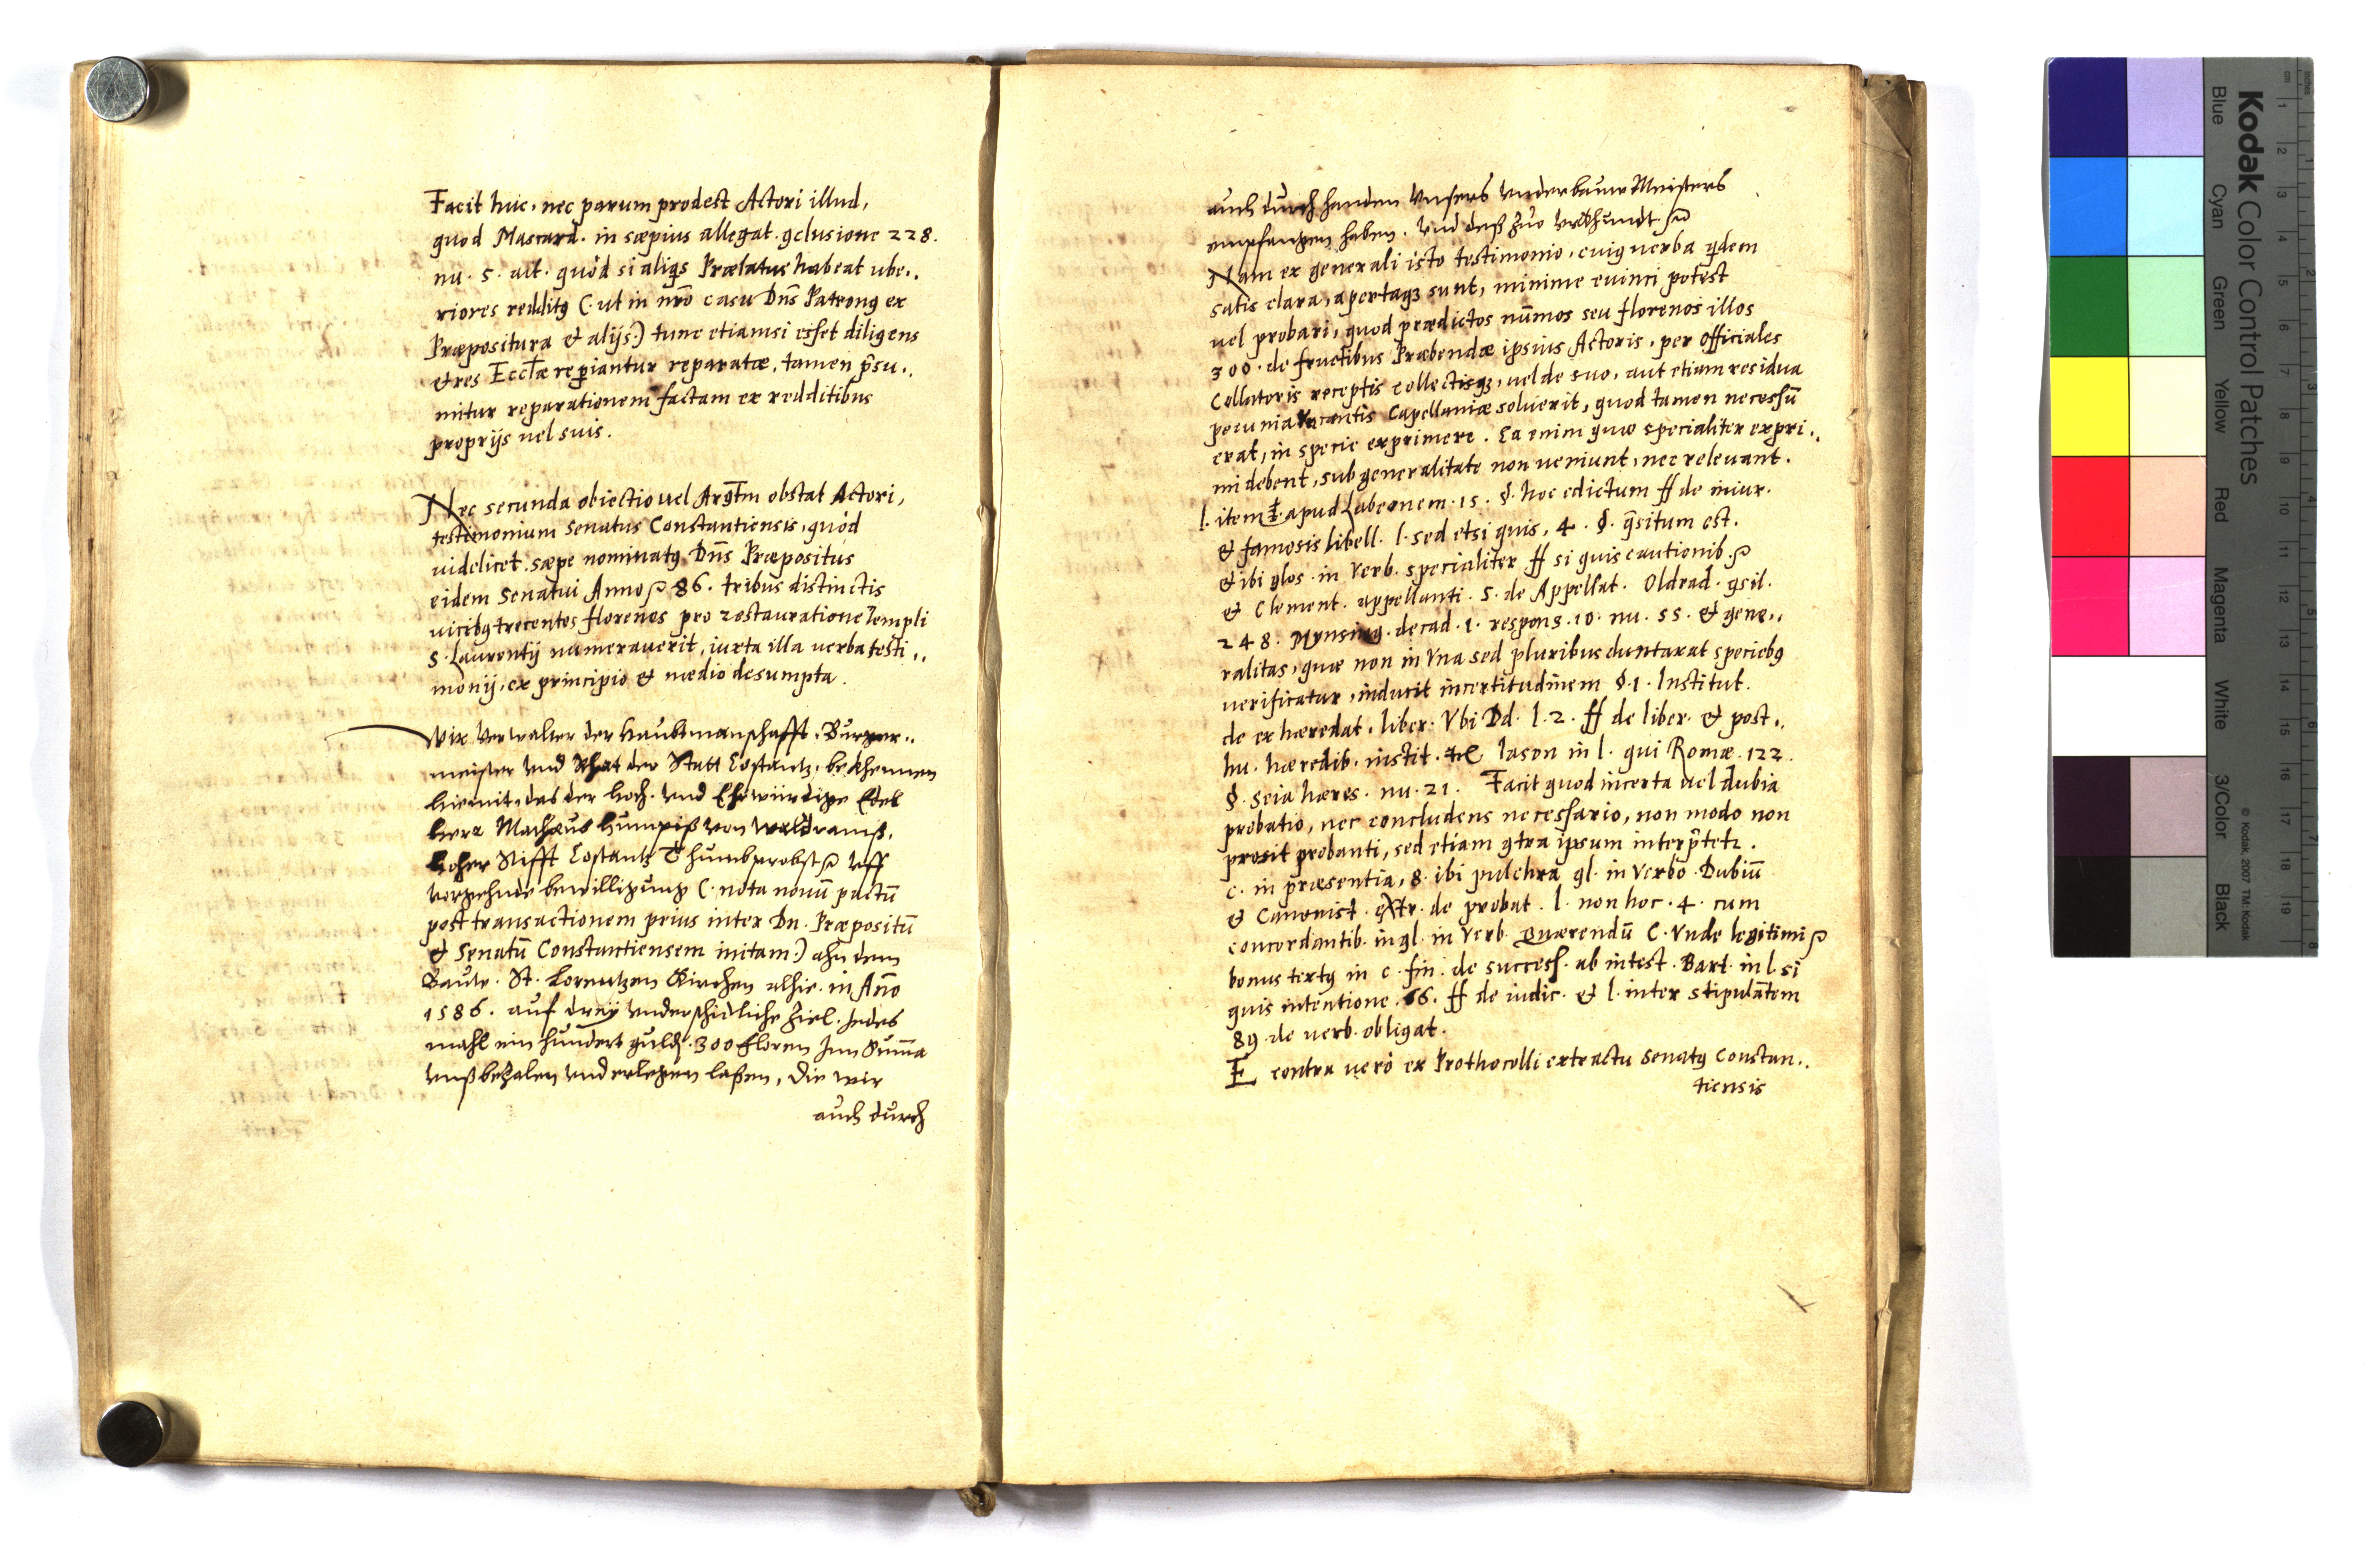 Facit huc, nec parum prodest Actori illud,
quod Mascard. in sæpius allegat. ꝯclusione 228.
nu. 5. ait. quòd si aliqs Prælatus habeat vbe..
riores redditꝰ (: ut in nrō casu Dns̄ Patronꝰ ex
Præpositura et alijs:) tunc etiamsi esset diligens
et res Eccl̄æ reꝑiantur reparatæ, tamen p̄su..
mitur reparationem factam ex redditibus
proprijs uel suis.
Nec secunda obiectio uel Argt̄m obstat Actori,
testimonium Senatus Constantiensis, quòd
uidelicet. sæpe nominatꝰ Dns̄ Præpositus
eidem Senatui Anno ꝛc 86. tribus distinctis
uicibꝰ trecentos florenos pro restauratione Templi
S. Laurentij numerauerit, iuxta illa uerba testi..
monij, ex principio et medio desumpta.
Wir Verwalter der Haubtmanschafft. Burger..
meister Vnd Rhat der Statt Costantz. bekhennen
hiemit, das der Hoch. Vnd Ehrwürdige Edel
Herr Matheus Humpiß Von Waldramß.
Hoher Stifft Costantz Thumbprobst ꝛc Vff
Vorgehende bewilligung (: nota nouū pactū
post transactionem prius inter Dn. Præpositū
et Senatū Constantiensem initam:) ahn dem
Bauw. St. Lorentzen Kirchen alhie. in Año
1586. auf dreÿ Vnderschidliche Ziel. Jedes
mahl ein hundert guld. 300 Floren Jnn Suma
Vnß bezalen Vnd erlegen laßen, Die wir
auch durch
auch durch handen Vnsers Vnderbauw Meisters
empfangen haben. Vnd deß Zuo Vrkhundt. ꝛc
Nam ex generali isto testimonio, cuiꝰ uerba qdem
satis clara, apertaqꝫ sunt, minime euinci potest
uel probari, quod prædictos nūmos seu florenos illos
300. de fructibus Præbendæ ipsius Actoris, per Officiales
Collatoris receptis collectisqꝫ, uel de suo, aut etiam residua
pecunia Vacantis Capellaniæ soluerit, quod tamen necessū
erat, in specie exprimere. Ea enim quæ specialiter expri..
mi debent, sub generalitate non ueniunt, nec relevant.
l. item apud Labeonem. 15. §. hoc edictum ff de iniur.
et famosis libell. l. sed etsi quis, 4. §. q̄situm est.
et ibi glos. in Verb. specialiter ff si quis cautionib. ꝛc
et Clement. appellanti. 5. de Appellat. Oldrad. ꝯsil.
248. Mynsing. decad. 1. respons. 10. nu. 55. et gene..
ralitas, quæ non in Vna sed pluribus duntaxat speciebꝰ
uerificatur, inducit incertitudinem §. 1. Institut.
de exhæredat. liber. Vbi Dd. l. 2. ff de liber. et post..
hu. hæredib. instit. Iason in l. qui Romæ. 122.
§. Seia hæres. nu. 21. Facit quod incerta uel dubia
probatio, nec concludens necessario, non modo non
prosit probanti, sed etiam ꝯtra ipsum interp̄tetr.
c. in præsentia, 8. ibi pulchra gl. in Verbo. Dubiū
et Canonist. extr. de probat. l. non hoc. 4. cum
concordantib. in gl. in Verb. Quærendū C. Vnde legitimi ꝛc
bonus textꝰ in c. fin. de success. ab intest. Bart. in l. si
quis intentione. 66. ff de iudic. et l. inter stipulātem
89. de uerb. obligat.
E contra uerò ex Prothocolli extractu Senatꝰ Constan..
tiensis
Kodak Color Control Patches
Blue Cyan Green Yellow Red Magenta White 3/Color Black
© Kodak, 2007 TM: Kodak